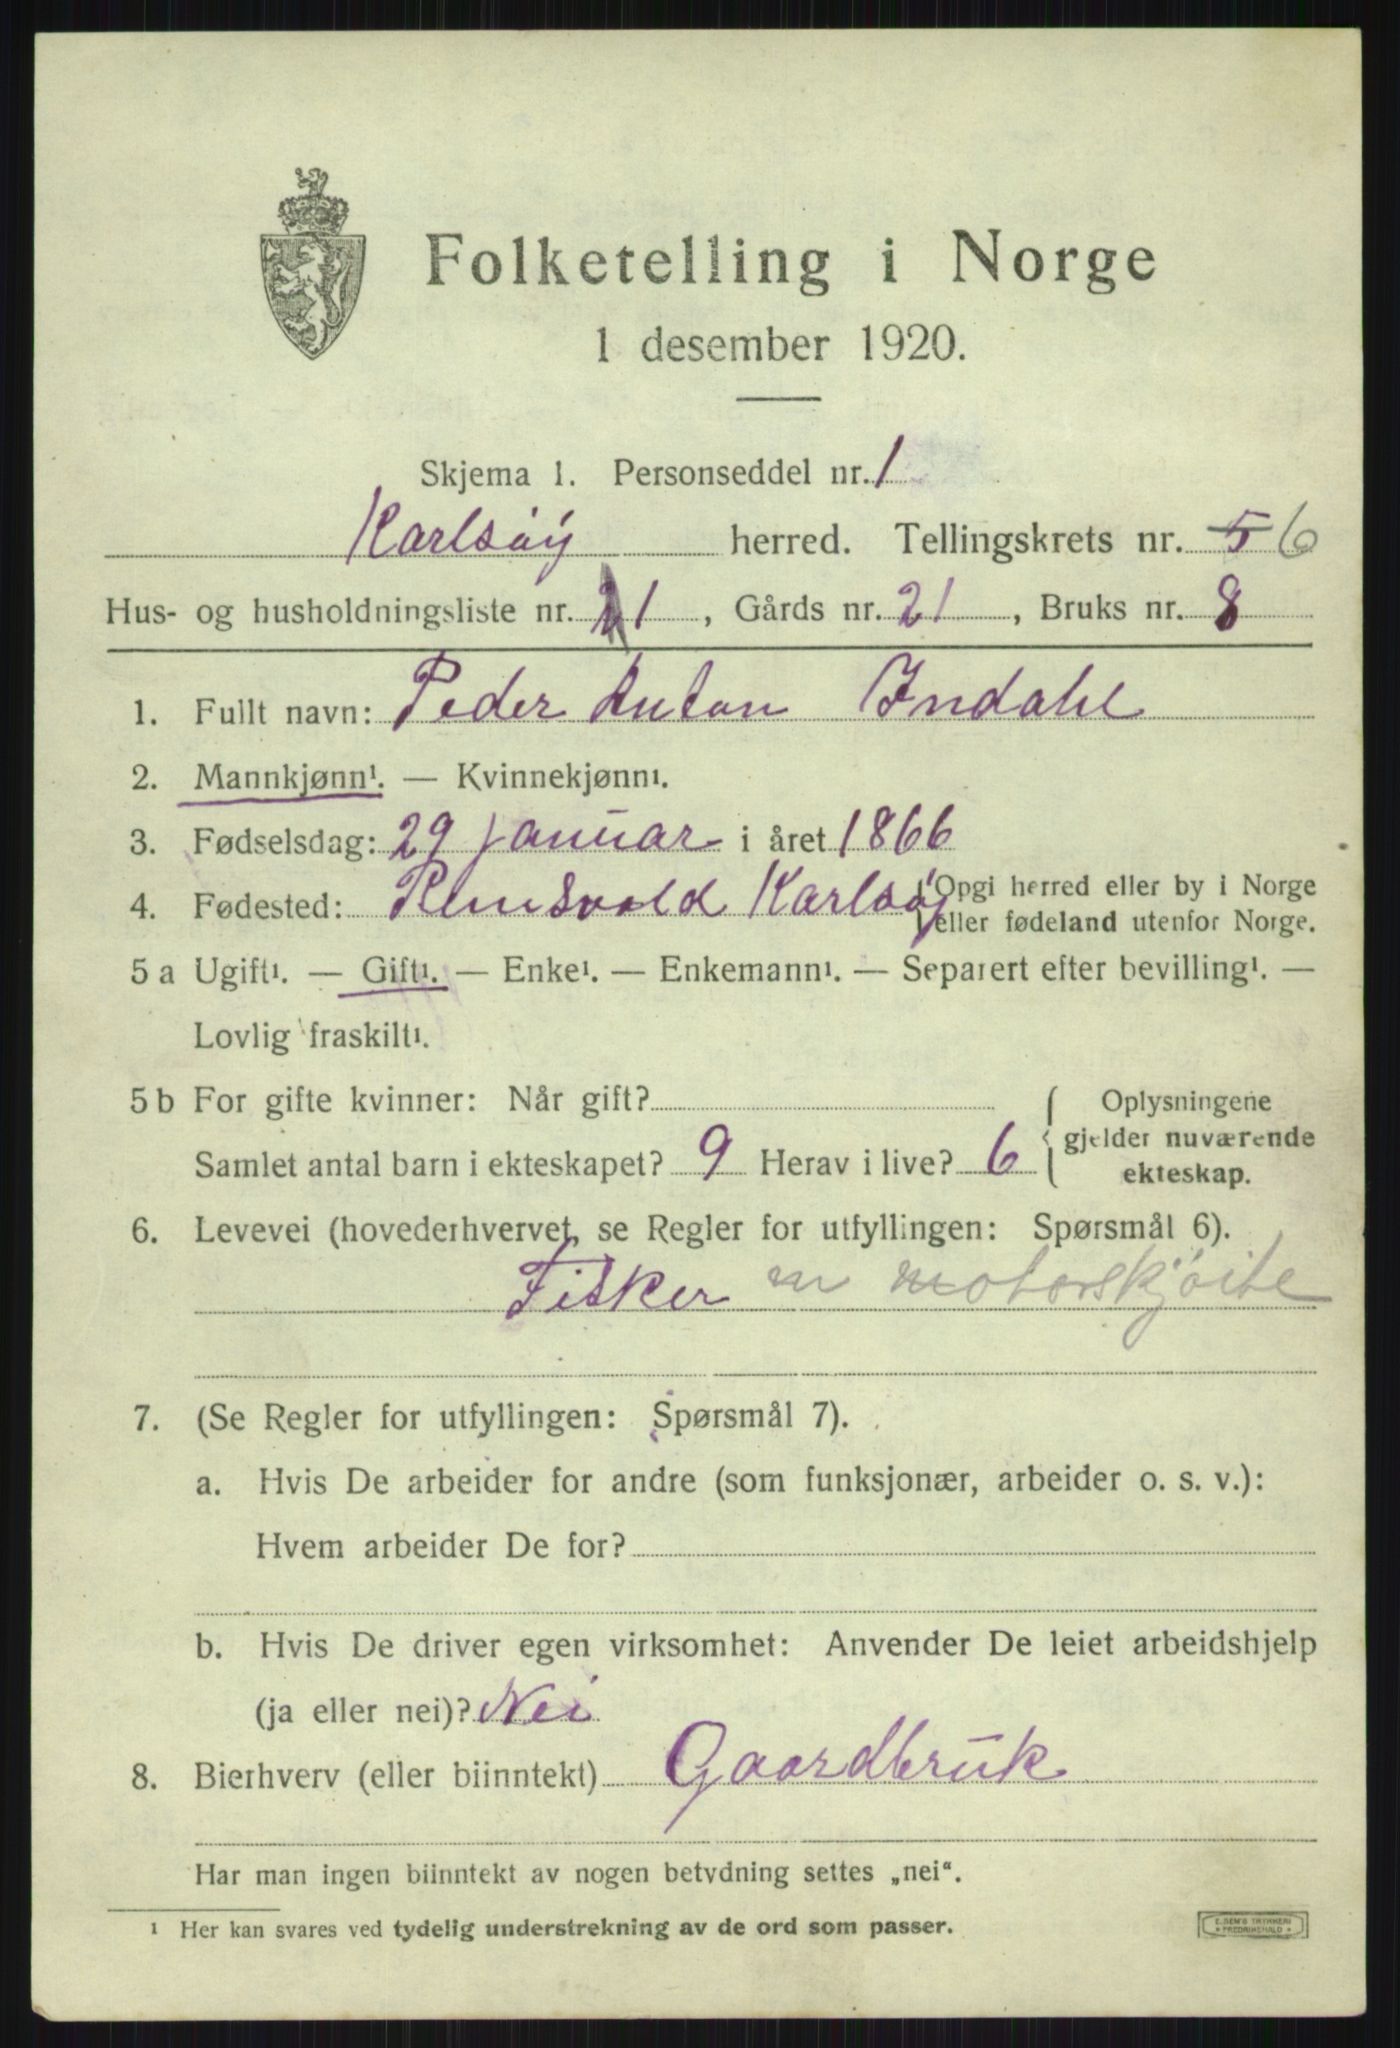 Folketelling i Norge
1 desember 1920.
Skjema 1. Personseddel nr. 1
Karlsøy herred. Tellingskrets nr. 5 6
Hus- og husholdningsliste nr. 21, Gårds nr. 21, Bruks nr. 8
1. Fullt navn: Peder Anton Indahl
2. Mannkjønn¹. — Kvinnekjønn¹.
3. Fødselsdag: 29 januar i året 1866
4. Fødested: Karlsøy { Opgi herred eller by i Norge
eller fødeland utenfor Norge.
5 a Ugift¹. — Gift¹. — Enke¹. — Enkemann¹. — Separert efter bevilling¹. —
Lovlig fraskilt¹.
5 b For gifte kvinner: Når gift? { Oplysningene
Samlet antal barn i ekteskapet? 9 Herav i live? 6 gjelder nuværende
ekteskap.
6. Levevei (hovederhvervet, se Regler for utfyllingen: Spørsmål 6).
Fisker m motorskjöite
7. (Se Regler for utfyllingen: Spørsmål 7).
a. Hvis De arbeider for andre (som funksjonær, arbeider o. s. v.):
Hvem arbeider De for?
b. Hvis De driver egen virksomhet: Anvender De leiet arbeidshjelp
(ja eller nei)? Nei
8. Bierhverv (eller biinntekt) Gaardbruk
Har man ingen biinntekt av nogen betydning settes „nei“.
¹ Her kan svares ved tydelig understrekning av de ord som passer.
E. SEM'S TRYKKERI
FREDRIKSHALD